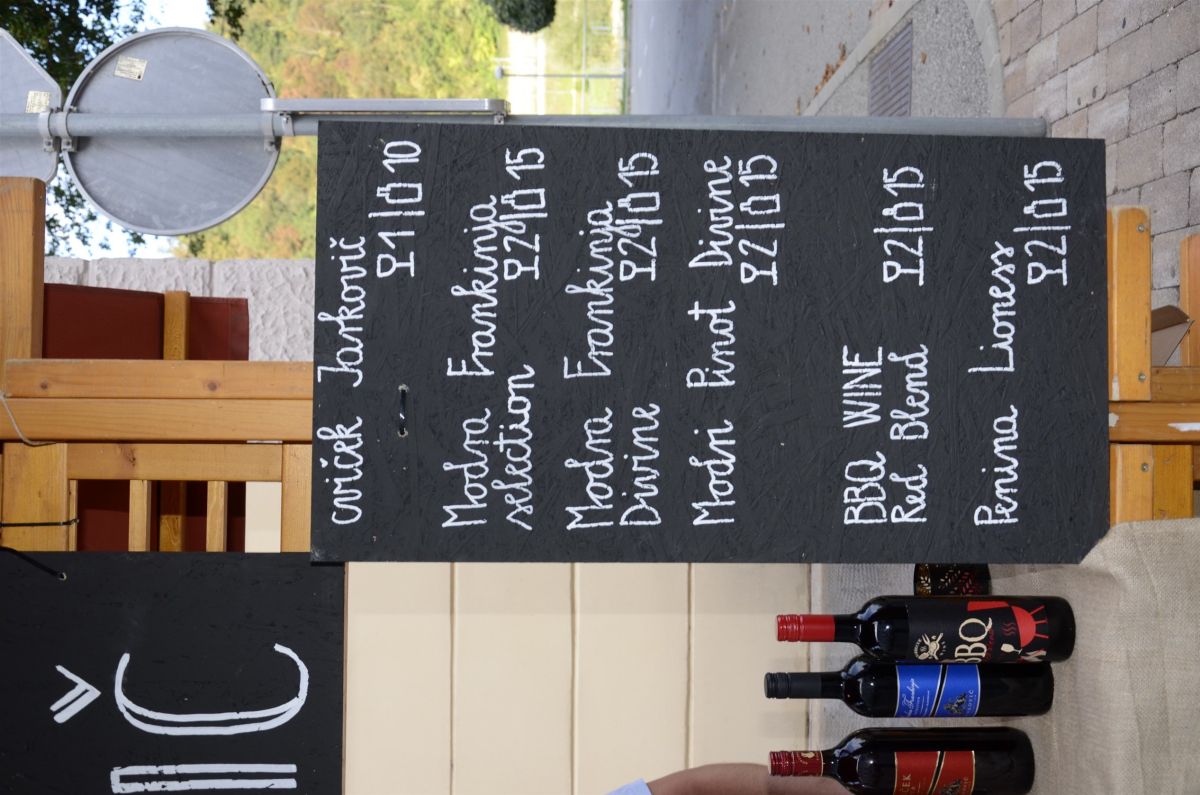 CVIČEK Jarkovič
1 / 10
Modra Frankinja
selection 2 / 15
Modra Frankinja
Divine 2 / 15
Modri Pinot Divine
2 / 15
BBQ WINE
Red Blend 2 / 15
Penina Lioness
2 / 15
IČ
BBQ